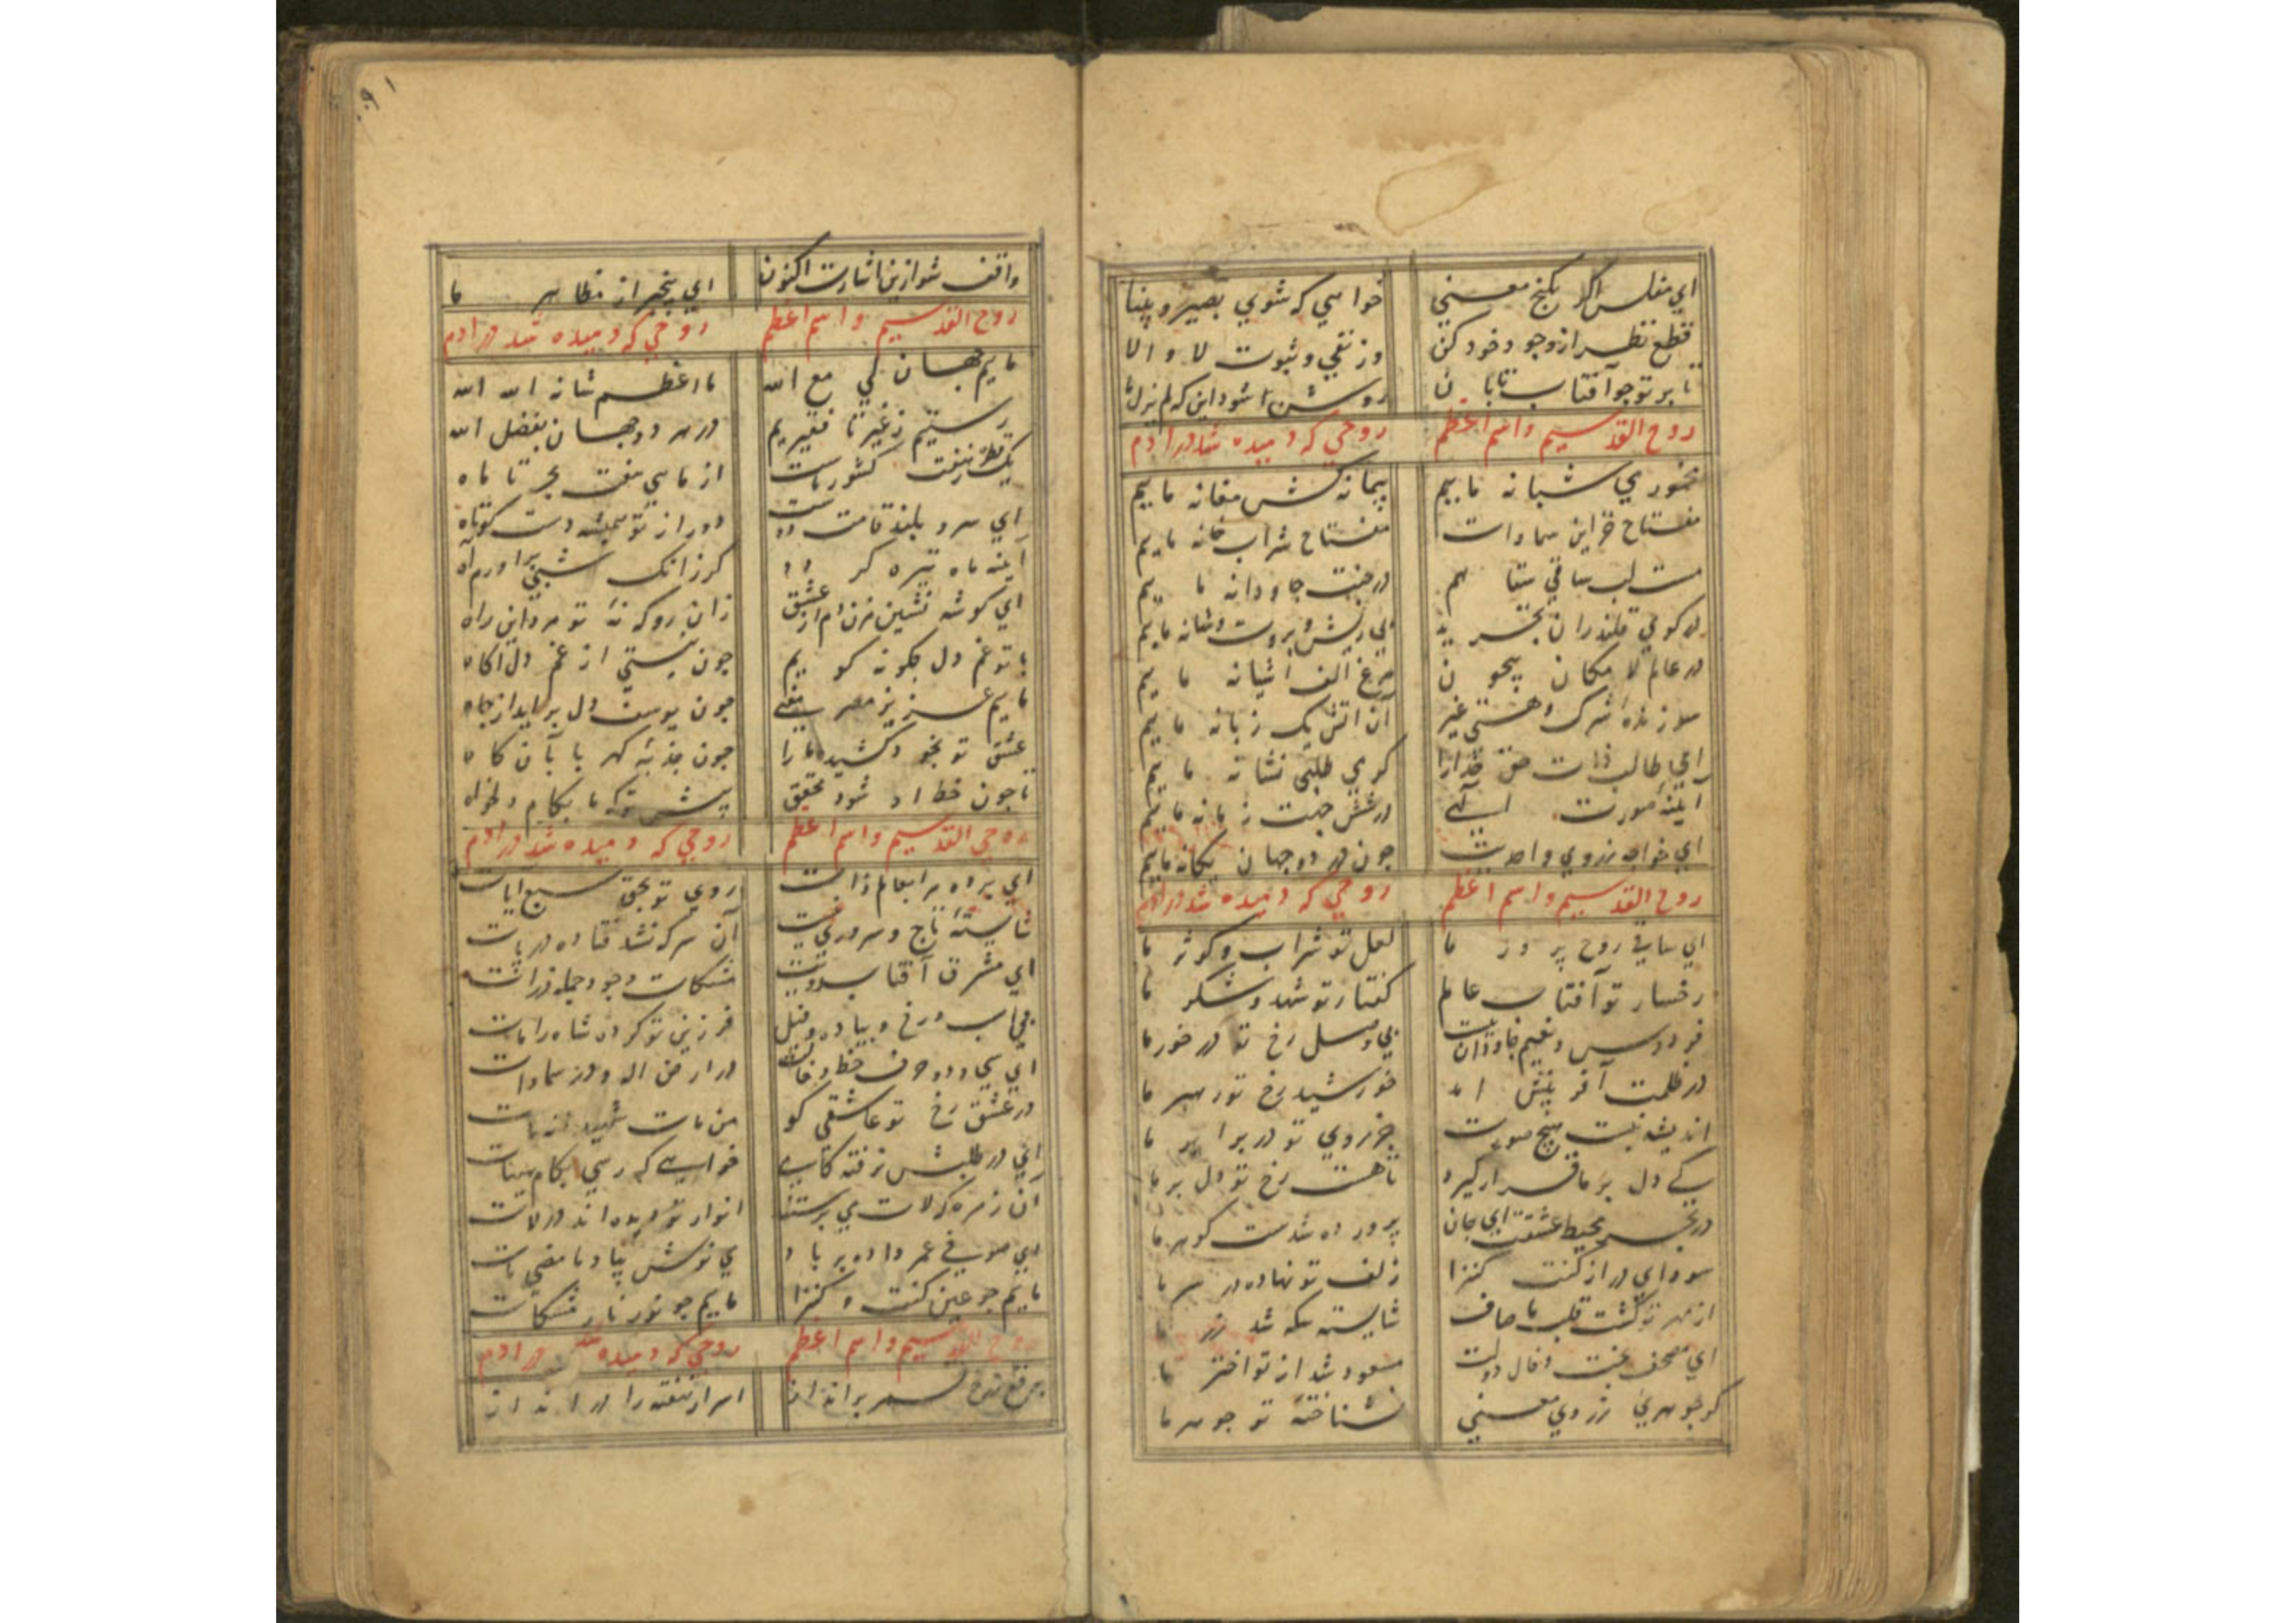 ای مفلس اگر بکنج معنی خواهی که شوی بصیر و بینا
قطع نظر از وجود خود کن وز نفی و ثبوت لا و الا
تا بر تو چو آفتاب تابان روشن شود این که لم یزل ما
روح القدسیم و اسم اعظم روحی که دمیده شد در ادم
مخموری شبانه ماییم پیمانه کش مغانه ماییم
مفتاح خزاین سماوات مفتاح شراب خانه ماییم
مست لب ساقی بقاییم در جنت جاودانه ماییم
در کوی قلندران تجرید بی ریش و بروت و شانه ماییم
در عالم لا مکان بیچون مرغ الف اشیانه ماییم
سوزنده شرک و هستی غیر آن اتش یک زبانه ماییم
ای طالب ذات حق خدا را کر می طلبی نشانه ماییم
ایینه صورت الهی در شش جهت زمانه ماییم
ای خواجه ز روی واحدیت چون در دو جهان یکانه ماییم
روح القدسیم و اسم اعظم روحی که دمیده شد در ادم
ای ساقی روح پرور ما لعل تو شراب و کوثر ما
رخسار تو آفتاب عالم کفتار تو شهد و شکر ما
فردوس و نعیم جاودان نیست بی وصل رخ تو در خور ما
در ظلمت آفرینش امد خورشید رخ تو رهبر ما
اندیشه نبست هیچ صورت جز روی تو در برابر ما
کی دل بر ما قرار کیرد تا هست رخ تو دل بر ما
در بحر محیط عشقت ای جان پرورده شدست کوهر ما
سودای دراز کنت کنزا زلف تو نهاده در سر ما
از مهر تو کشت قلب ما صاف شایسته سکه شد زر ما
ای مصحف بخت و فال دولت مسعود شد از تو اختر ما
کو جوهری ز روی معنی نشناخته تو جوهر ما
واقف شو ازین اشارت اکنون ای بیخبر از مظاهر ما
روح القدسیم و اسم اعظم روحی که دمیده شد در ادم
ماییم جهان لی مع الله ما اعظم شانه الله الله
رستیم ز غیر تا فقیریم در هر دو جهان بفضل الله
یک قطره ز هفت کشور ماست از ماهی هفت بحر تا ماه
ای سرو بلند قامت دوست دور از تو همیشه دست کوتاه
ایینه ماه تیره کردد کر زانک شبی براورم آه
ای کوشه نشین مزن دم از عشق زان رو که نه تو مرد این راه
با تو غم دل چکونه کویم چون نیستی از غم دل آکاه
ماییم عزیز مصر معنی چون یوسف دل بر اید از چاه
عشق تو بخود کشید ما را چون جذبه کهربا بآن کاه
تا چون خط او شود محقق پیش تو که ما بکام دلخواه
روحی القدسیم و اسم اعظم روحی که دمیده شد در ادم
ای پرده سرا بعالم ذات روی تو بحق سبع ایات
شایسته تاج و سروری نیست آن سر که نشد فتاده در پات
ای مشرق آفتاب رویت مشکات وجود جمله ذرات
بی اسب و رخ و پیاده و فیل فرزین تو کرده شاه را مات
ای سی و دو حرف خط و خالت در ارض اله و در سماوات
در عشق رخ تو عاشقی کو من مات شهید
ای در طلبش نرفته کامی خواهی که رسی بکام هیهات
آن زمره که لات می پرستند انوار تو دیده اند در لات
ای صوفی عمر داده بر باد می نوش بیاد ما مضی فات
ماییم چو عین کنت و کنزا ماییم چو نور نار مشکات
روح القدسیم و اسم اعظم روحی که دمیده شد در ادم
برقع ز رخ قمر برانداز اسرار نهفته را در انداز